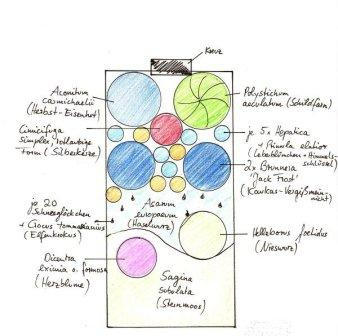 Kreuz
Aconitum
carmichaelii
(Herbst-Eisenhut)
Polystichum
aculeatum (Schildfarn)
Cimicifuga
simplex, rotlaubige
Form (Silberkerze)
je 5x Hepatica
+ Primula elatior
(Leberblümchen + Himmels-
schlüssel)
2x Brunnera
"Jack Frost"
(Kaukas-Vergißmein-
nicht)
je 20
Schneeglöckchen
+ Crocus tommasinianus
(Elfenkrokus)
Asarum
europaeum
(Haselwurz)
Helleborus foetidus
(Nieswurz)
Dicentra
eximia o. formosa
(Herzblume)
Sagina
subulata
(Sternmoos)